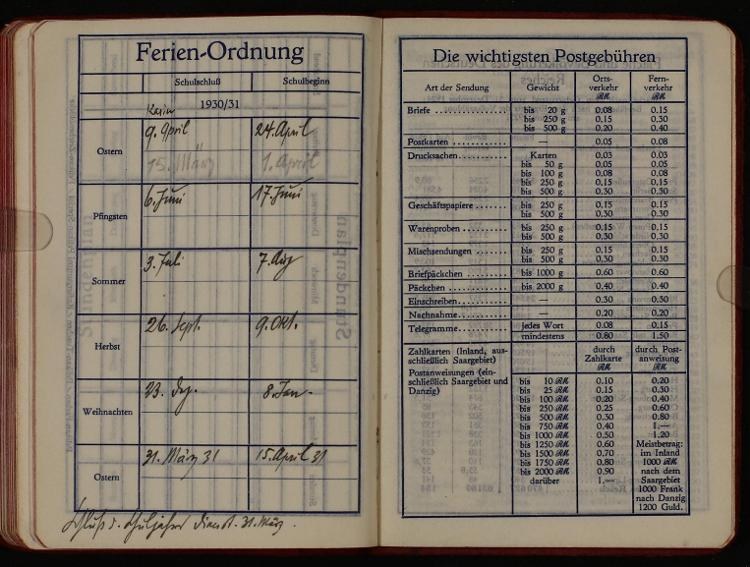 Ferien-Ordnung
Schulschluß Schulbeginn
1930/31
Karin
9. April 24. April
Ostern
15. März 1. April
6. Juni 17. Juni
Pfingsten
3. Juli 7. Aug
Sommer
26. Sept. 9. Okt.
Herbst
23. Dez. 8. Jan.
Weihnachten
31. März 31 15. April 31
Ostern
Schluß d. Schuljahres Dienst. 31. März.
Die wichtigsten Postgebühren
Art der Sendung Gewicht Orts- Fern-
verkehr verkehr
RM RM
Briefe bis 20 g 0.08 0.15
bis 250 g 0.15 0.30
bis 500 g 0.20 0.40
Postkarten — 0.05 0.08
Drucksachen Karten 0.03 0.03
bis 50 g 0.05 0.05
bis 100 g 0.08 0.08
bis 250 g 0.15 0.15
bis 500 g 0.30 0.30
Geschäftspapiere bis 250 g 0.15 0.15
bis 500 g 0.30 0.30
Warenproben bis 250 g 0.15 0.15
bis 500 g 0.30 0.30
Mischsendungen bis 250 g 0.15 0.15
bis 500 g 0.30 0.30
Briefpäckchen bis 1000 g 0.60 0.60
Päckchen bis 2000 g 0.40 0.40
Einschreiben — 0.30 0.30
Nachnahme — 0.20 0.20
Telegramme jedes Wort 0.08 0.15
mindestens 0.80 1.50
Zahlkarten (Inland, aus- durch durch Post-
schließlich Saargebiet) Zahlkarte anweisung
Postanweisungen (ein- RM RM
schließlich Saargebiet und bis 10 RM 0.10 0.20
Danzig) bis 25 RM 0.15 0.30
bis 100 RM 0.20 0.40
bis 250 RM 0.25 0.60
bis 500 RM 0.30 0.80
bis 750 RM 0.40 1.—
bis 1000 RM 0.50 1.20
bis 1250 RM 0.60 Meistbetrag:
bis 1500 RM 0.70 im Inland
bis 1750 RM 0.80 1000 RM
bis 2000 RM 0.90 nach dem
darüber 1.— Saargebiet
1000 Frank
nach Danzig
1200 Guld.